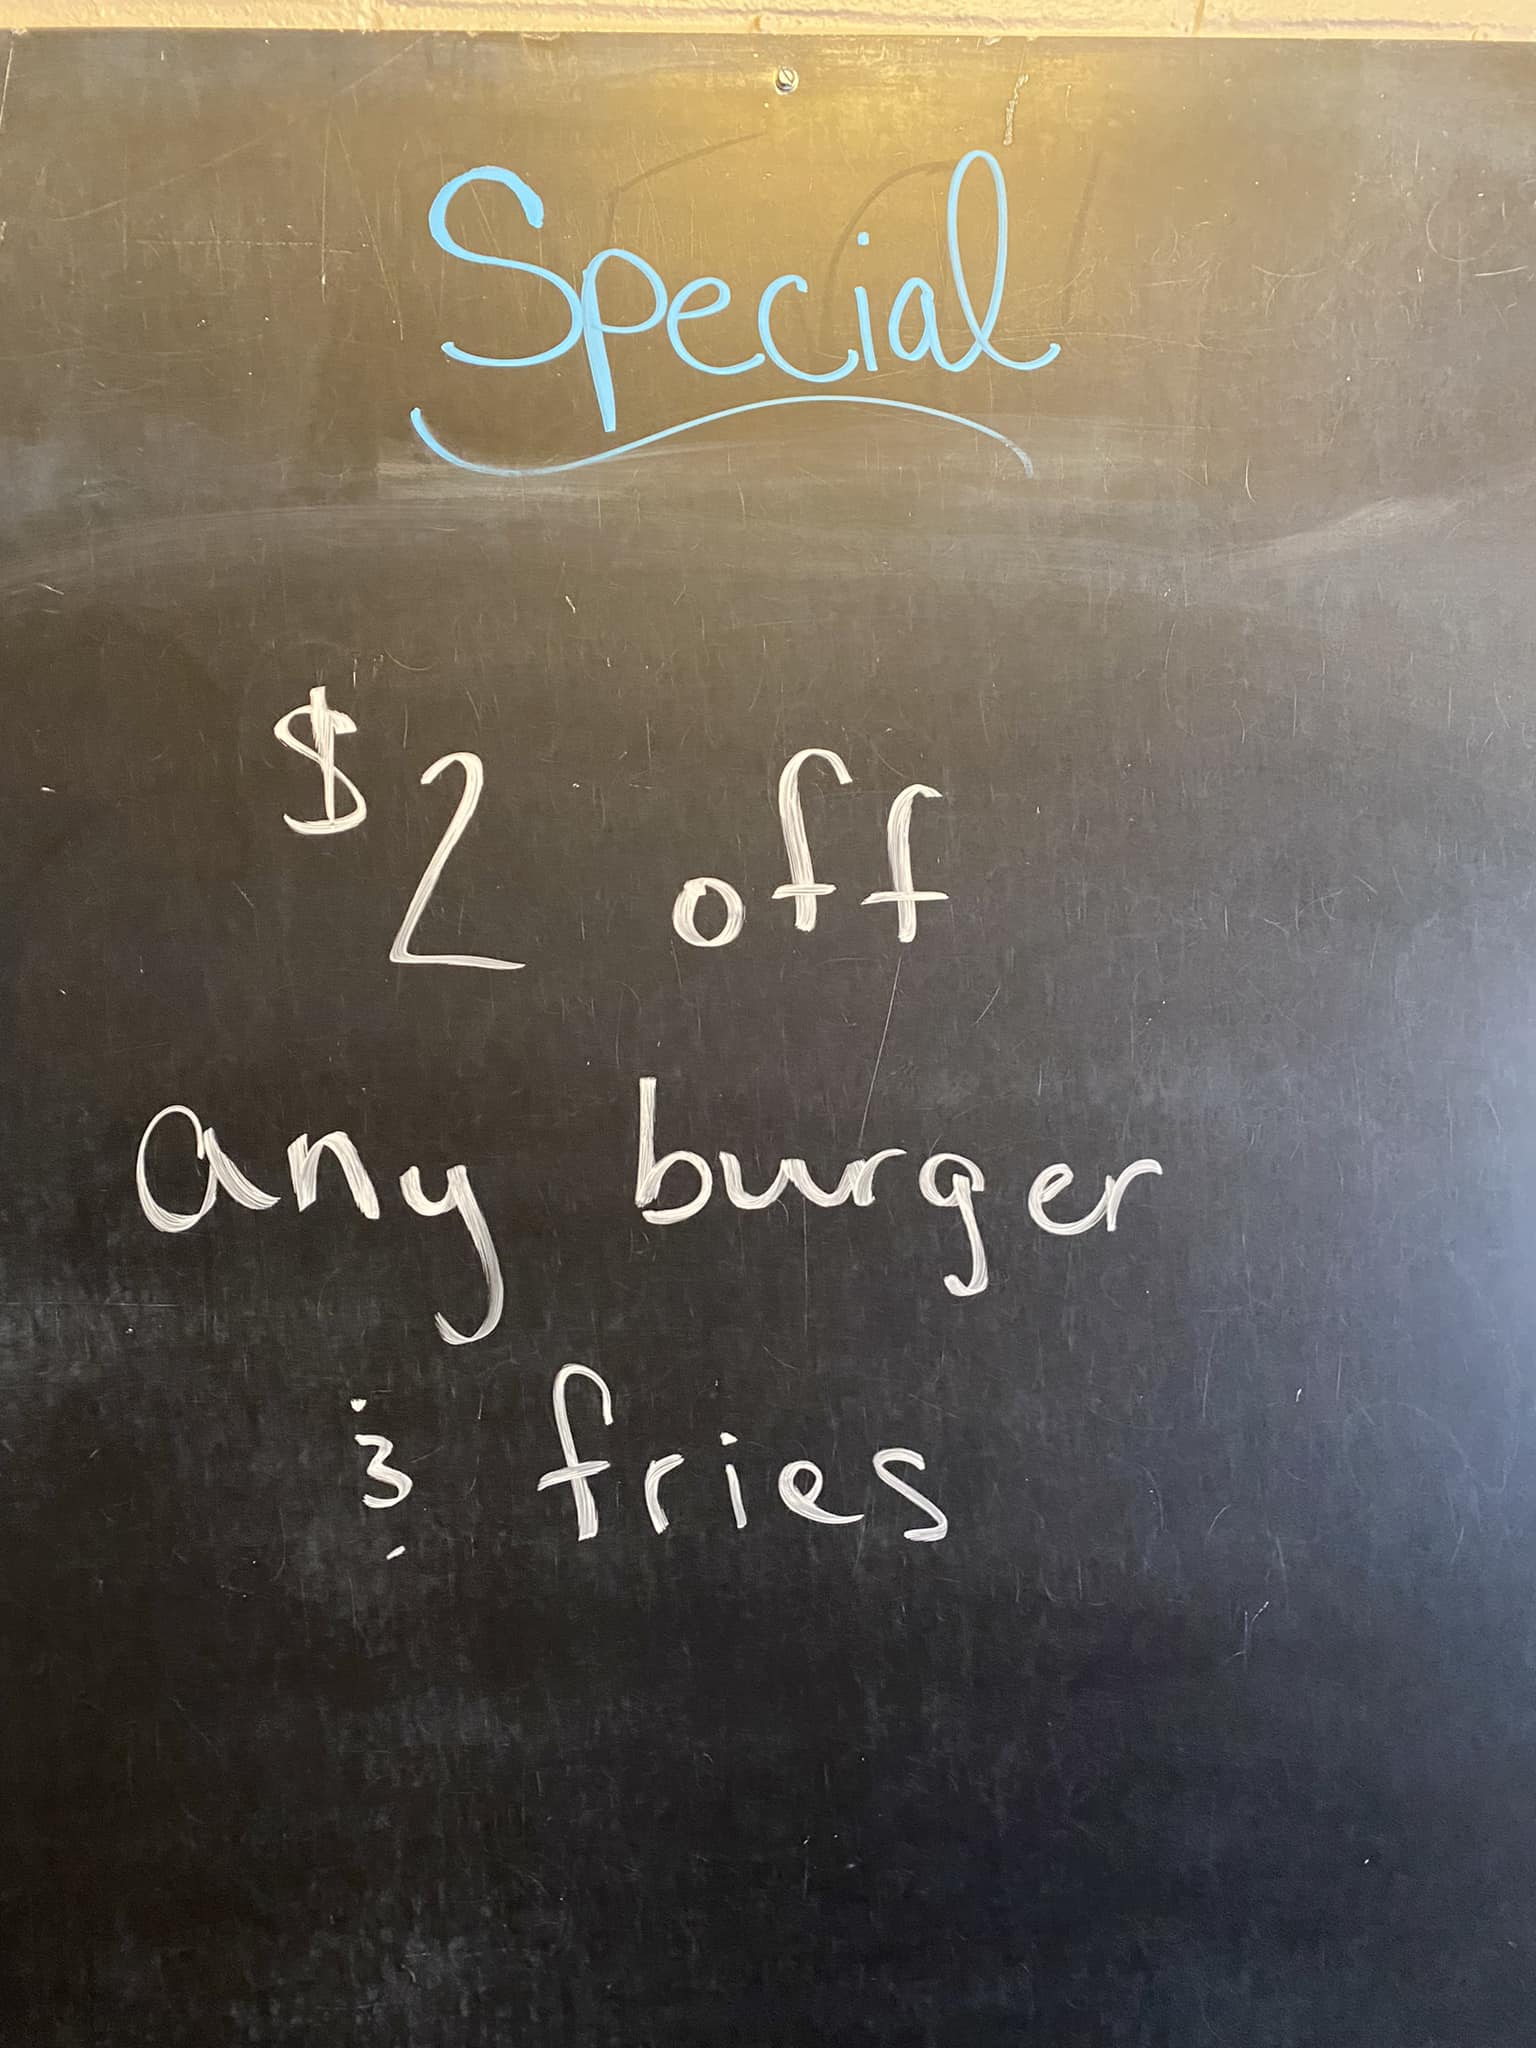 Special
$2 off
any burger
& fries